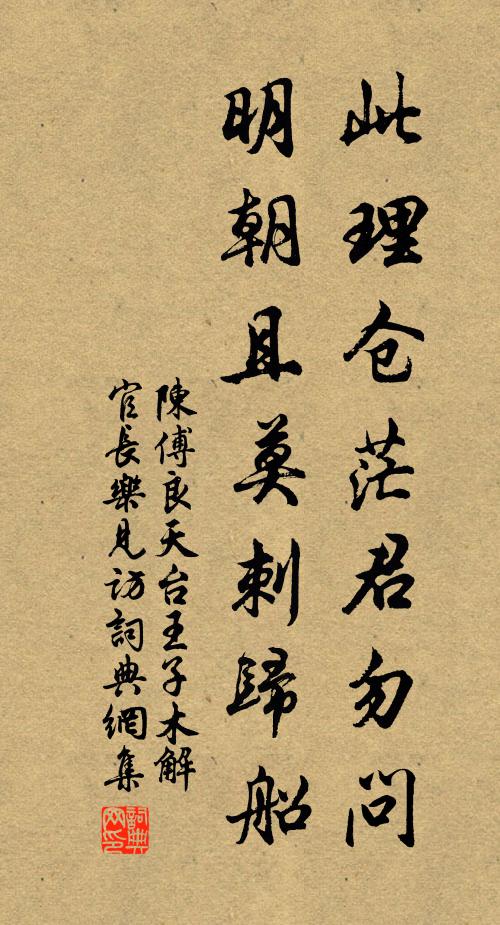 此理仓茫君勿問
明朝且莫刺歸船
陳傅良天台王子木解
官長樂見訪詞典網集
詞典网印